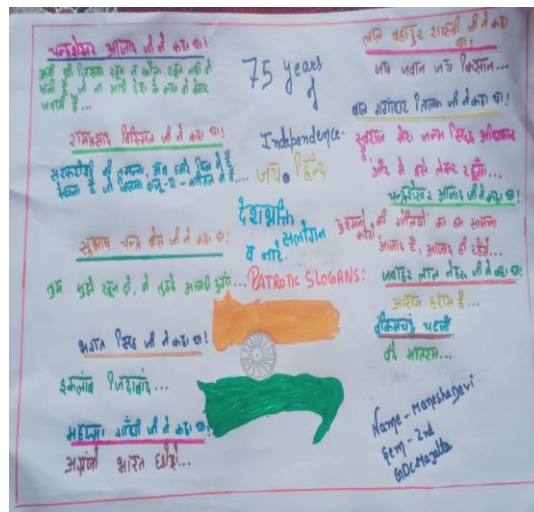 चन्द्रशेखर आजाद जी ने कहा था!
अभी भी जिसका खून ना खौला खून नहीं वो
पानी है, जो ना आये देश के काम वो बेकार
जवानी है...
रामप्रसाद बिस्मिल जी ने कहा था!
सरफरोशी की तमन्ना, अब हमारे दिल में है
देखना है जोर कितना बाजू-ए-कातिल में है...
सुभाष चन्द्र बोस जी ने कहा था!
तुम मुझे खून दो, मैं तुम्हे आजादी दूंगा...
भगत सिंह जी ने कहा था!
इंकलाब जिंदाबाद...
महात्मा गाँधी जी ने कहा था!
अंग्रेजो भारत छोड़ो...
75 years
of
Independence.
जय हिन्द
देशभक्ति
व नारे. सलोगन
PATROTIC SLOGANS:
लाल बहादुर शास्त्री जी ने कहा
था!
जय जवान जय किसान...
बाल गंगाधर तिलक जी ने कहा था!
स्वराज मेरा जन्म सिद्ध अधिकार
और मैं इसे लेकर रहूंगा...
चन्द्रशेखर आजाद जी ने कहा था!
दुश्मनो की गोलियों का हम सामना
करेंगे
आजाद हैं, आजाद ही रहेंगे...
जवाहर लाल नेहरू जी ने कहा था!
आराम हराम है...
बंकिमचंद्र चटर्जी
वंदे मातरम...
Name - Maneshadevi
Sem - 2nd
GDC-Majalta